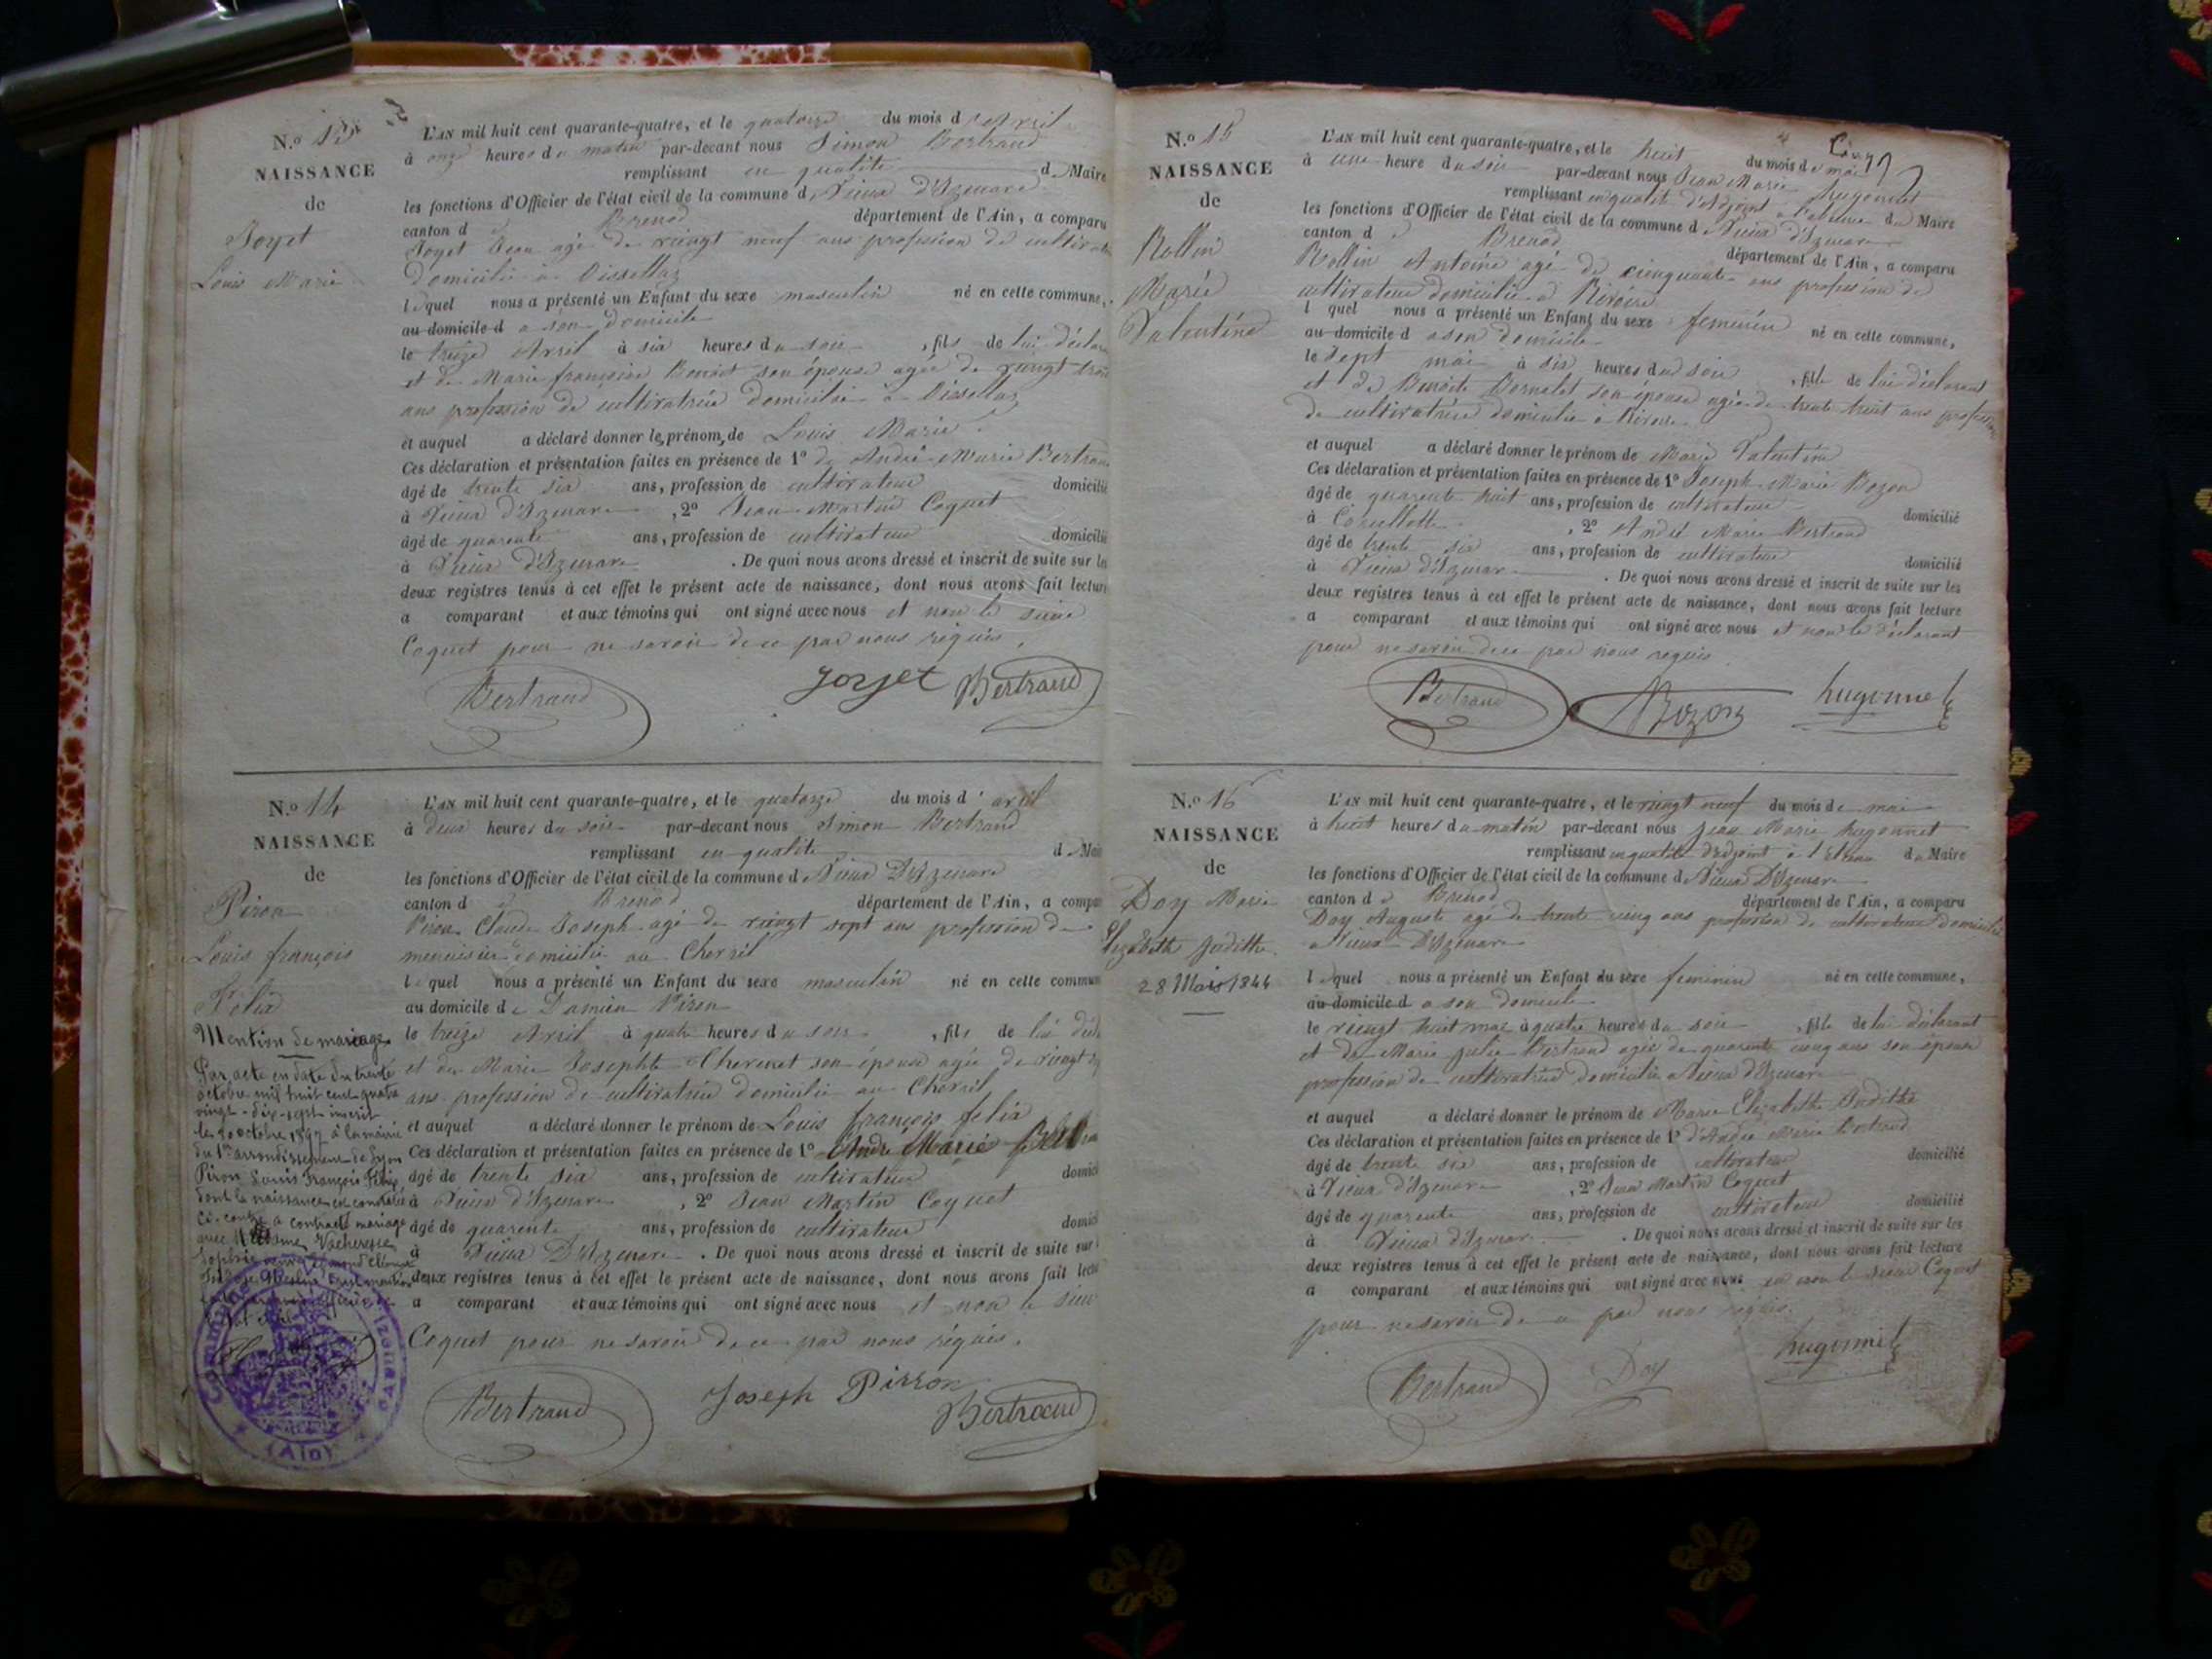 N.o 13
NAISSANCE
de
Joyet
Louis Marie
L'AN mil huit cent quarante-quatre, et le quatorze du mois d'Avril
à onze heures du matin par-devant nous Simon Bertrand
remplissant en qualité de Maire
les fonctions d'Officier de l'état civil de la commune de Vieux d'Izenave
canton de Brenod département de l'Ain, a comparu
Joyet Jean agé de vingt neuf ans profession de cultivateur
domicilié à
lequel nous a présenté un Enfant du sexe masculin né en cette commune,
au domicile d a son domicile
le treize Avril à six heures du soir, fils de lui déclarant
et de Marie françoise Benoit son épouse agée de vingt trois
ans profession de cultivatrice domiciliée à
et auquel a déclaré donner le prénom de Louis Marie
Ces déclaration et présentation faites en présence de 1o de André Marie Bertrand
âgé de trente six ans, profession de cultivateur domicilié
à Vieux d'Izenave, 2o Jean Martin Coquet
âgé de quarente ans, profession de cultivateur domicilié
à Vieux d'Izenave. De quoi nous avons dressé et inscrit de suite sur les
deux registres tenus à cet effet le présent acte de naissance, dont nous avons fait lecture
a comparant et aux témoins qui ont signé avec nous et non le sieur
Coquet pour ne savoir de ce par nous réquis.
Bertrand Joyet Bertrand
N.o 14
NAISSANCE
de
Piron
Louis françois
Félix
L'AN mil huit cent quarante-quatre, et le quatorze du mois d'avril
à deux heures du soir par-devant nous Simon Bertrand
remplissant en qualité d Maire
les fonctions d'Officier de l'état civil de la commune de Vieux D'Izenave
canton de Brenod département de l'Ain, a comparu
Piron Claude Joseph agé de vingt sept ans profession de
menuisier domicilié au Chevril
lequel nous a présenté un Enfant du sexe masculin né en cette commune
au domicile de Damien Piron
le treize Avril à quatre heures du soir, fils de lui décl
et de Marie Josephte Chevenet son épouse agée de vingt
ans profession de cultivatrice domiciliée au Chevril
et auquel a déclaré donner le prénom de Louis françois felix
Ces déclaration et présentation faites en présence de 1o André Marie Bertrand
âgé de trente six ans, profession de cultivateur domicil
à Vieux d'Izenave, 2o Jean Martin Coquet
âgé de quarente ans, profession de cultivateur domici
à Vieux D'Izenave. De quoi nous avons dressé et inscrit de suite sur
deux registres tenus à cet effet le présent acte de naissance, dont nous avons fait lectu
a comparant et aux témoins qui ont signé avec nous et non le sieur
Coquet pour ne savoir de ce par nous réquis.
Bertrand Joseph Pirron Bertrand
Mention de mariage
Par acte en date du trente
octobre mil huit cent quatre
vingt-dix-sept inscrit
le 30 octobre 1897 à la mairie
du 1er arrondissement de Lyon
Piron Louis François Félix
dont la naissance est constatée
ci-contre a contracté mariage
avec Vacheresse
Sophie veuve
Commune Vieu d'Izenave
(Ain)
N.o 15
NAISSANCE
de
Rollin
Marie
Valentine
L'AN mil huit cent quarante-quatre, et le huit du mois de mai
à une heure du soir par-devant nous Jean Marie hugonnet
remplissant en qualité d'Adjoint a l'absence du Maire
les fonctions d'Officier de l'état civil de la commune de Vieux d'Izenave
canton de Brenod département de l'Ain, a comparu
Rollin Antoine agé de cinquante ans profession de
cultivateur domicilié à
l quel nous a présenté un Enfant du sexe feminin né en cette commune,
au domicile d a son domicile
le sept mai à six heures du soir, fille de lui déclarant
et de Benoite son épouse agée de trente huit ans profession
de cultivatrice domiciliée à
et auquel a déclaré donner le prénom de Marie Valentine
Ces déclaration et présentation faites en présence de 1o Joseph Marie Bozon
âgé de quarente huit ans, profession de cultivateur domicilié
à, 2o André Marie Bertrand
âgé de trente six ans, profession de cultivateur domicilié
à Vieux d'Izenave. De quoi nous avons dressé et inscrit de suite sur les
deux registres tenus à cet effet le présent acte de naissance, dont nous avons fait lecture
a comparant et aux témoins qui ont signé avec nous et non le déclarant
pour ne savoir de ce par nous requis
Bertrand Bozon hugonnet
N.o 16
NAISSANCE
de
Doy Marie
Elizabeth Juditte
28 Mais 1844
L'AN mil huit cent quarante-quatre, et le vingt neuf du mois de mai
à huit heures du matin par-devant nous Jean Marie hugonnet
remplissant en qualité d'adjoint à l'absence du Maire
les fonctions d'Officier de l'état civil de la commune de Vieux D'Izenave
canton de Brenod département de l'Ain, a comparu
Doy Auguste agé de trente cinq ans profession de cultivateur domicilié
a Vieux D'Izenave
lequel nous a présenté un Enfant du sexe feminin né en cette commune,
au domicile d a son domicile
le vingt huit mai à quatre heures du soir, fille de lui déclarant
et de Marie Julie Bertrand agée de quarente cinq ans son épouse
profession de cultivatrice domiciliée a Vieux d'Izenave
et auquel a déclaré donner le prénom de Marie Elizabethe Juditte
Ces déclaration et présentation faites en présence de 1o d'André Marie Bertrand
âgé de trente six ans, profession de cultivateur domicilié
à Vieux d'Izenave, 2o Jean Martin Coquet
âgé de quarente ans, profession de cultivateur domicilié
à Vieux d'Izenave. De quoi nous avons dressé et inscrit de suite sur les
deux registres tenus à cet effet le présent acte de naissance, dont nous avons fait lecture
a comparant et aux témoins qui ont signé avec nous et non le sieur Coquet
pour ne savoir de ce par nous réquis.
Bertrand Doy hugonnet